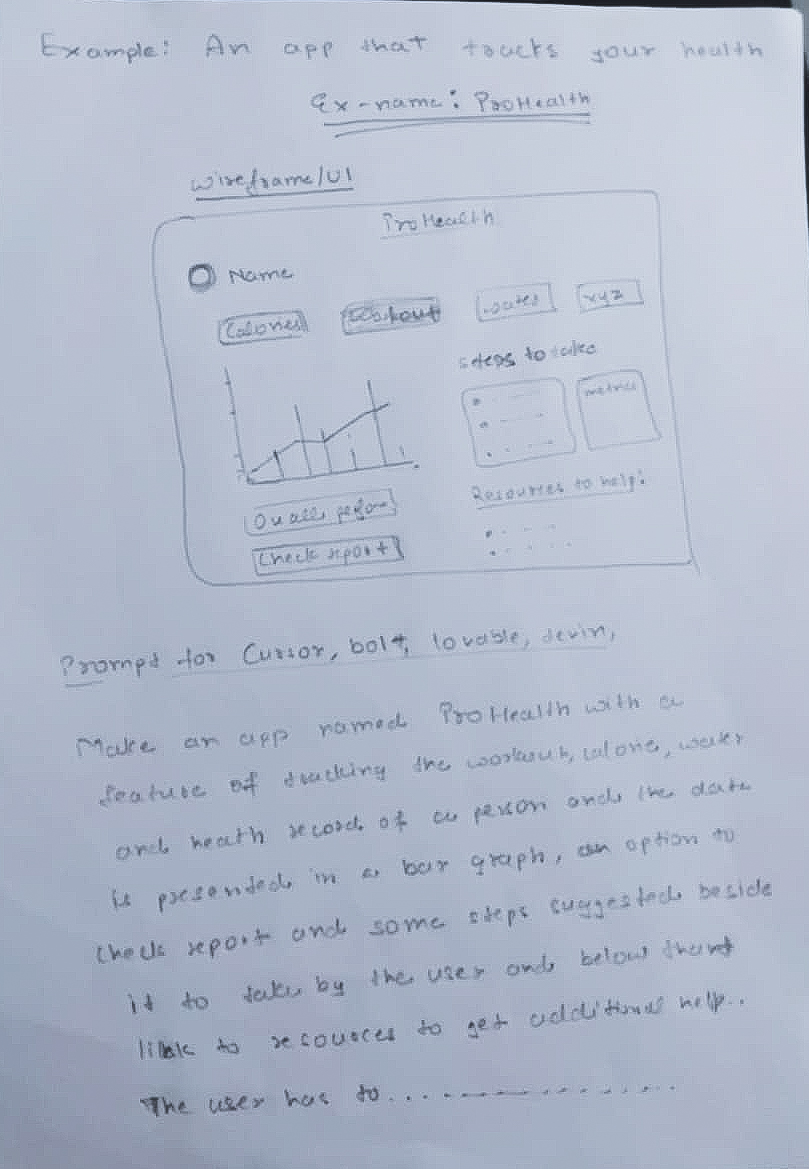 Example: An app that tracks your health
Ex-name: ProHealth
Wireframe/UI
ProHealth
Name
Calories
Workout
water
xyz
steps to take
metrics
Overall perform
Check report
Resources to help:
Prompt for Cursor, bolt, lovable, devin,
Make an app named ProHealth with a
feature of tracking the workout, calorie, water
and heath record of a person and the data
is presented in a bar graph, an option to
check report and some steps suggested beside
it to take by the user and below that
link to resources to get additional help..
The user has to..............